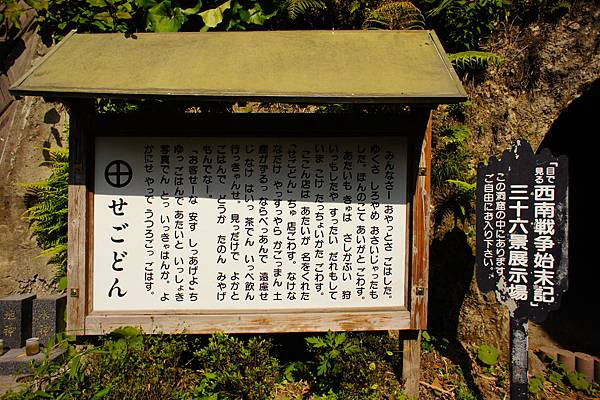 みんなさー おやっとさ ごはした。
ゆくさ しろやめ おさいじゃったも
した。ほんのこて あいがと ごわす。
あたいも きゅは さしかぶい 狩
いっもしたや すったい だれもして
いま こけ たっちょいかた ごわす。
「ここん店は あたいが 名をくれた
「せごどん」ちゅ 店ごわす。なけな
なだけ やっすっやら かごっまん 土
産がずるっ ならべっあんで 遠慮せ
じ なけ はいっ 茶でん いっぺ飲ん
行っきゃんせ。見っだけで よかと
ごはんで どうか たのん みやげ
もんでなー
「お客せーな 安す しっあげよ」ごち
ゆっ ごはんで あたいと いっしょき
写真でん とっ いっきゃはんか。よ
かにせ やっで うつろごっ ごはす。
せごどん
「目で見る」西南戦争始末記
三十六景展示場
この洞窟の中にあります。
ご自由にお入り下さい。